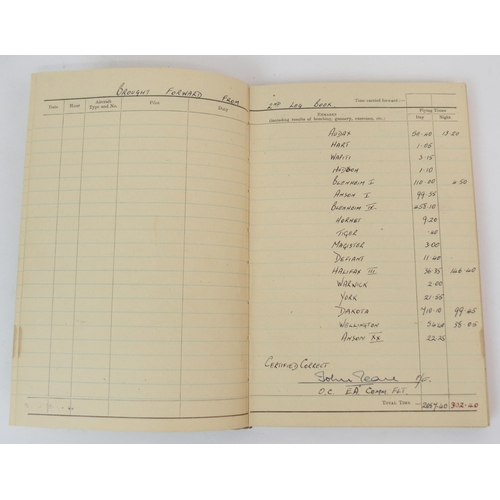 BROUGHT FORWARD FROM 2ND LOG BOOK.
Time carried forward:—
Date Hour Aircraft Type and No. Pilot Duty REMARKS Flying Times
(including results of bombing, gunnery, exercises, etc.) Day Night
AUDAX 50.40 13.20
HART 1.05
WAPITI 3.15
HUDSON 1.10
BLENHEIM I 110.00 4.50
ANSON I 99.55
BLENHEIM IV 458.10
HORNET 9.20
TIGER .40
MAGISTER 3.00
DEFIANT 11.40
HALIFAX III 36.35 146.40
WARWICK 2.00
YORK 21.55
DAKOTA 710.10 99.45
WELLINGTON 38.05
ANSON 22.25
CERTIFIED CORRECT
O.C. EA COMM FLT.
TOTAL TIME 302.40